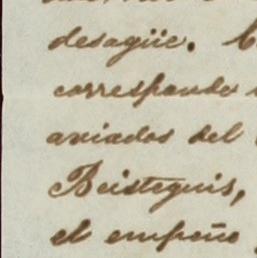 desagüe.
corresponder
aviados del
Beisteguis,
el empeño